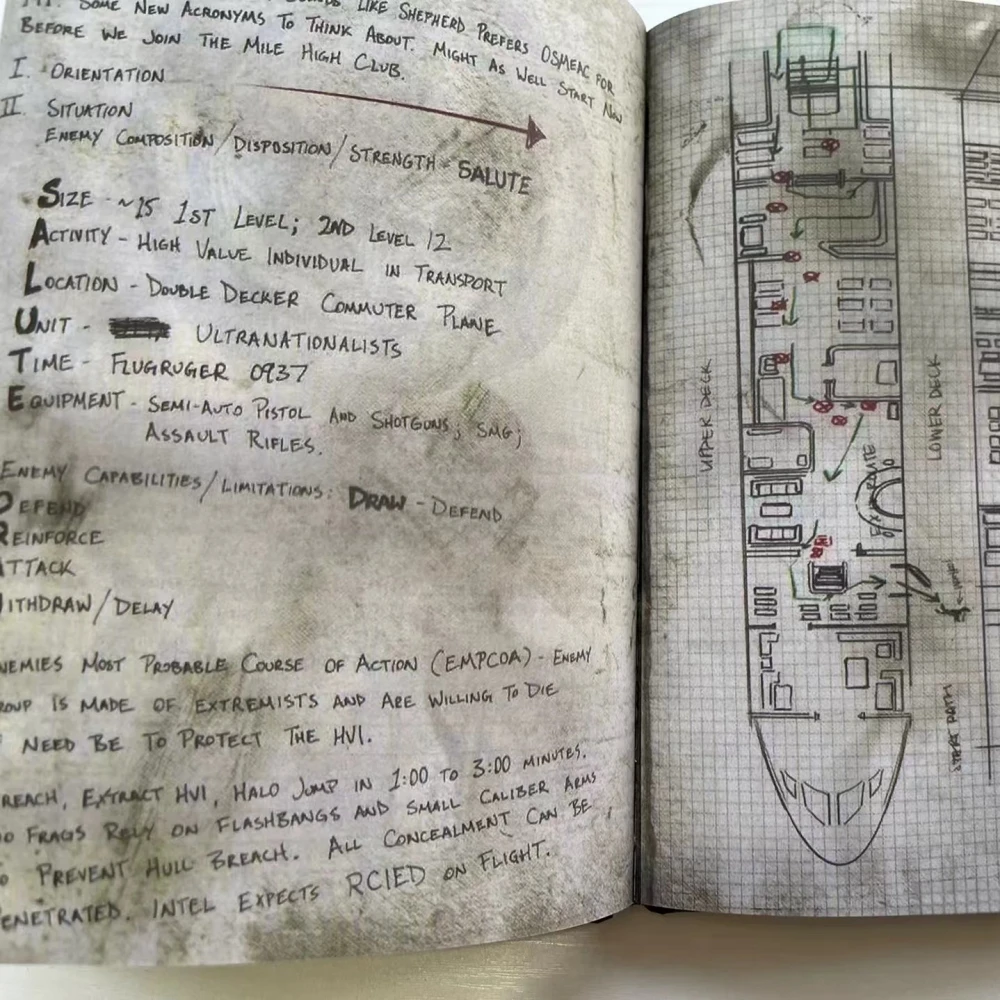 SOME NEW ACRONYMS TO THINK ABOUT. LIKE SHEPHERD PREFERS OSMEAC FOR
BEFORE WE JOIN THE MILE HIGH CLUB. MIGHT AS WELL START NOW
I. ORIENTATION
II. SITUATION
ENEMY COMPOSITION/DISPOSITION/STRENGTH - SALUTE
SIZE - ~15 1ST LEVEL; 2ND LEVEL 12
ACTIVITY - HIGH VALUE INDIVIDUAL IN TRANSPORT
LOCATION - DOUBLE DECKER COMMUTER PLANE
UNIT - ULTRANATIONALISTS
TIME - FLUGRUGER 0937
EQUIPMENT - SEMI-AUTO PISTOL AND SHOTGUNS; SMG;
ASSAULT RIFLES.
ENEMY CAPABILITIES/LIMITATIONS: DRAW - DEFEND
DEFEND
REINFORCE
ATTACK
WITHDRAW/DELAY
ENEMIES MOST PROBABLE COURSE OF ACTION (EMPCOA) - ENEMY
GROUP IS MADE OF EXTREMISTS AND ARE WILLING TO DIE
NEED BE TO PROTECT THE HVI.
BREACH, EXTRACT HVI, HALO JUMP IN 1:00 TO 3:00 MINUTES.
NO FRAGS RELY ON FLASHBANGS AND SMALL CALIBER ARMS
TO PREVENT HULL BREACH. ALL CONCEALMENT CAN BE
PENETRATED. INTEL EXPECTS RCIED ON FLIGHT.
UPPER DECK
LOWER DECK
ROUTE
START PATH